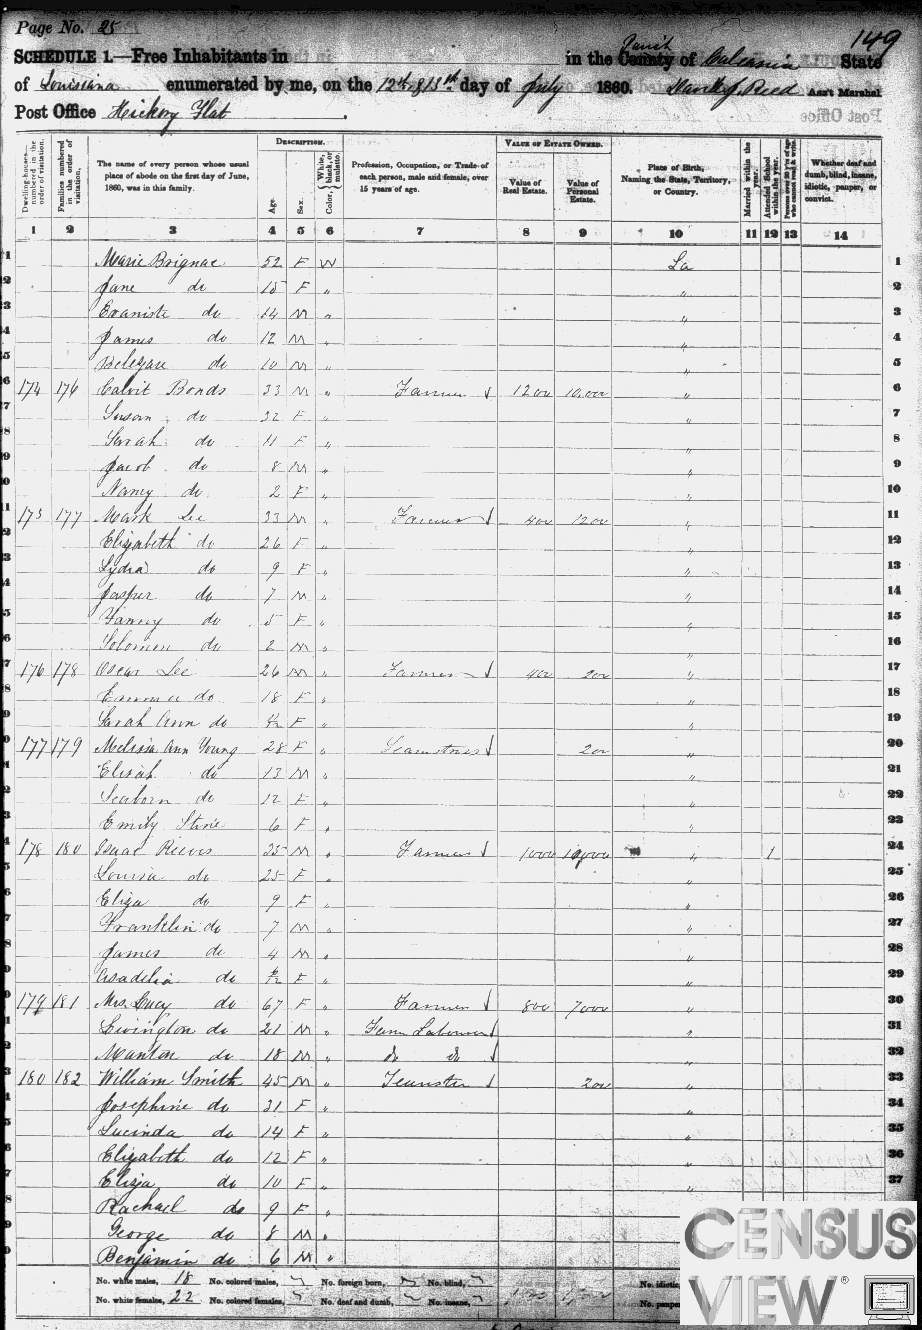 Page No. 25
149
SCHEDULE 1.—Free Inhabitants in in the County of Parish Calcasieu State
of Louisiana enumerated by me, on the 12th & 13th day of July 1860. Ass't Marshal
Post Office Hickory Flat
Dwelling-houses—numbered in the order of visitation.
Families numbered in the order of visitation.
The name of every person whose usual place of abode on the first day of June, 1860, was in this family.
DESCRIPTION.
Age.
Sex.
Color, White, black, or mulatto.
Profession, Occupation, or Trade of each person, male and female, over 15 years of age.
VALUE OF ESTATE OWNED.
Value of Real Estate.
Value of Personal Estate.
Place of Birth, Naming the State, Territory, or Country.
Married within the year.
Attended School within the year.
Persons over 20 y'rs of age who cannot read & write.
Whether deaf and dumb, blind, insane, idiotic, pauper, or convict.
1 2 3 4 5 6 7 8 9 10 11 12 13 14
1 Marie Brignac 52 F W La 1
2 Jane do 15 F " " 2
3 Evariste do 14 M " " 3
4 James do 12 M " " 4
5 do 10 M " " 5
6 174 176 Calvit Bonds 33 M " Farmer 1200 10,000 " 6
7 Susan do 32 F " " 7
8 Sarah do 11 F " " 8
9 Jacob do 8 M " " 9
10 Nancy do 2 F " " 10
11 175 177 Mark Lee 33 M " Farmer 400 1200 " 11
12 Elizabeth do 26 F " " 12
13 Lydia do 9 F " " 13
14 Jasper do 7 M " " 14
15 Fanny do 5 F " " 15
16 Solomon do 2 M " " 16
17 176 178 Oscar Lee 26 M " Farmer 400 200 " 17
18 do 18 F " " 18
19 Sarah Ann do F " " 19
20 177 179 Melissa Ann Young 28 F " Seamstress 200 " 20
21 Elisah do 13 M " " 21
22 Seaborn do 12 F " " 22
23 Emily 6 F " " 23
24 178 180 Isaac Reeves 35 M " Farmer 1000 10,000 " 1 24
25 Louisa do 25 F " " 25
26 Eliza do 9 F " " 26
27 Franklin do 7 M " " 27
28 James do 4 M " " 28
29 do F " " 29
30 179 181 Mrs. Lucy do 67 F " Farmer 800 7000 " 30
31 Livington do 21 M " Farm Labourer " 31
32 Manton do 18 M " do do " 32
33 180 182 William Smith 45 M " Teamster 200 " 33
34 Josephine do 31 F " " 34
35 Lucinda do 14 F " " 35
36 Elizabeth do 12 F " " 36
37 Eliza do 10 F " " 37
8 Rachael do 9 F "
9 George do 8 M "
0 Benjamin do 6 M "
No. white males, 18 No. colored males, No. foreign born, No. blind, No. idiotic,
No. white females, 22 No. colored females, No. deaf and dumb, No. insane, No. paupers
CENSUS
VIEW®